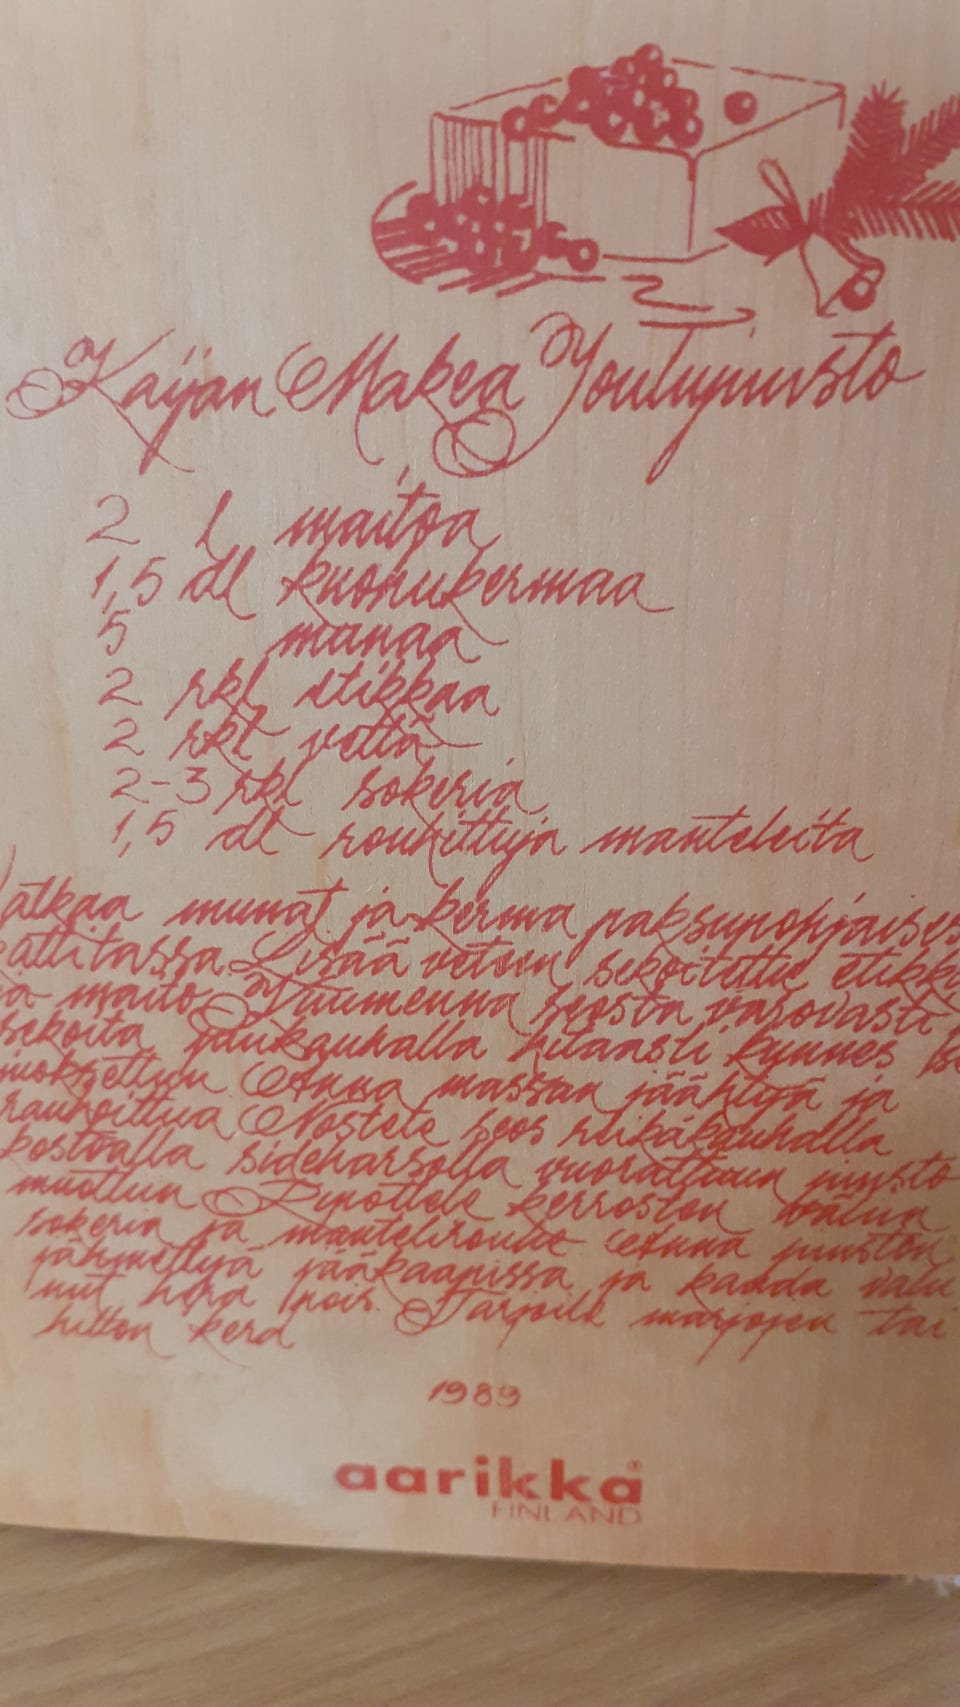 Kaijan Makea Joulujuusto
2 l maitoa
1,5 dl kuohukermaa
5 munaa
2 rkl etikkaa
2 rkl vettä
2-3 rkl sokeria
1,5 dl rouhittuja manteleita
atkaa munat ja kerma paksupohjaises
attilassa Lisää veteen sekoitettu etikka
ja maito Kuumenna seosta varovasti
sekoita puukauhalla hitaasti kunnes
juoksettuu Anna massan jäähtyä ja
rauhoittua Nostele seos reikäkauhalla
kostealla sideharsolla vuorattuun juusto
muottiin Ripottele kerrosten väliin
sokeria ja mantelirouhe Anna juuston
jähmettyä jääkaapissa ja kaada valu
nut hera pois. Tarjoile marjojen tai
hillon kera
1989
aarikka®
FINLAND